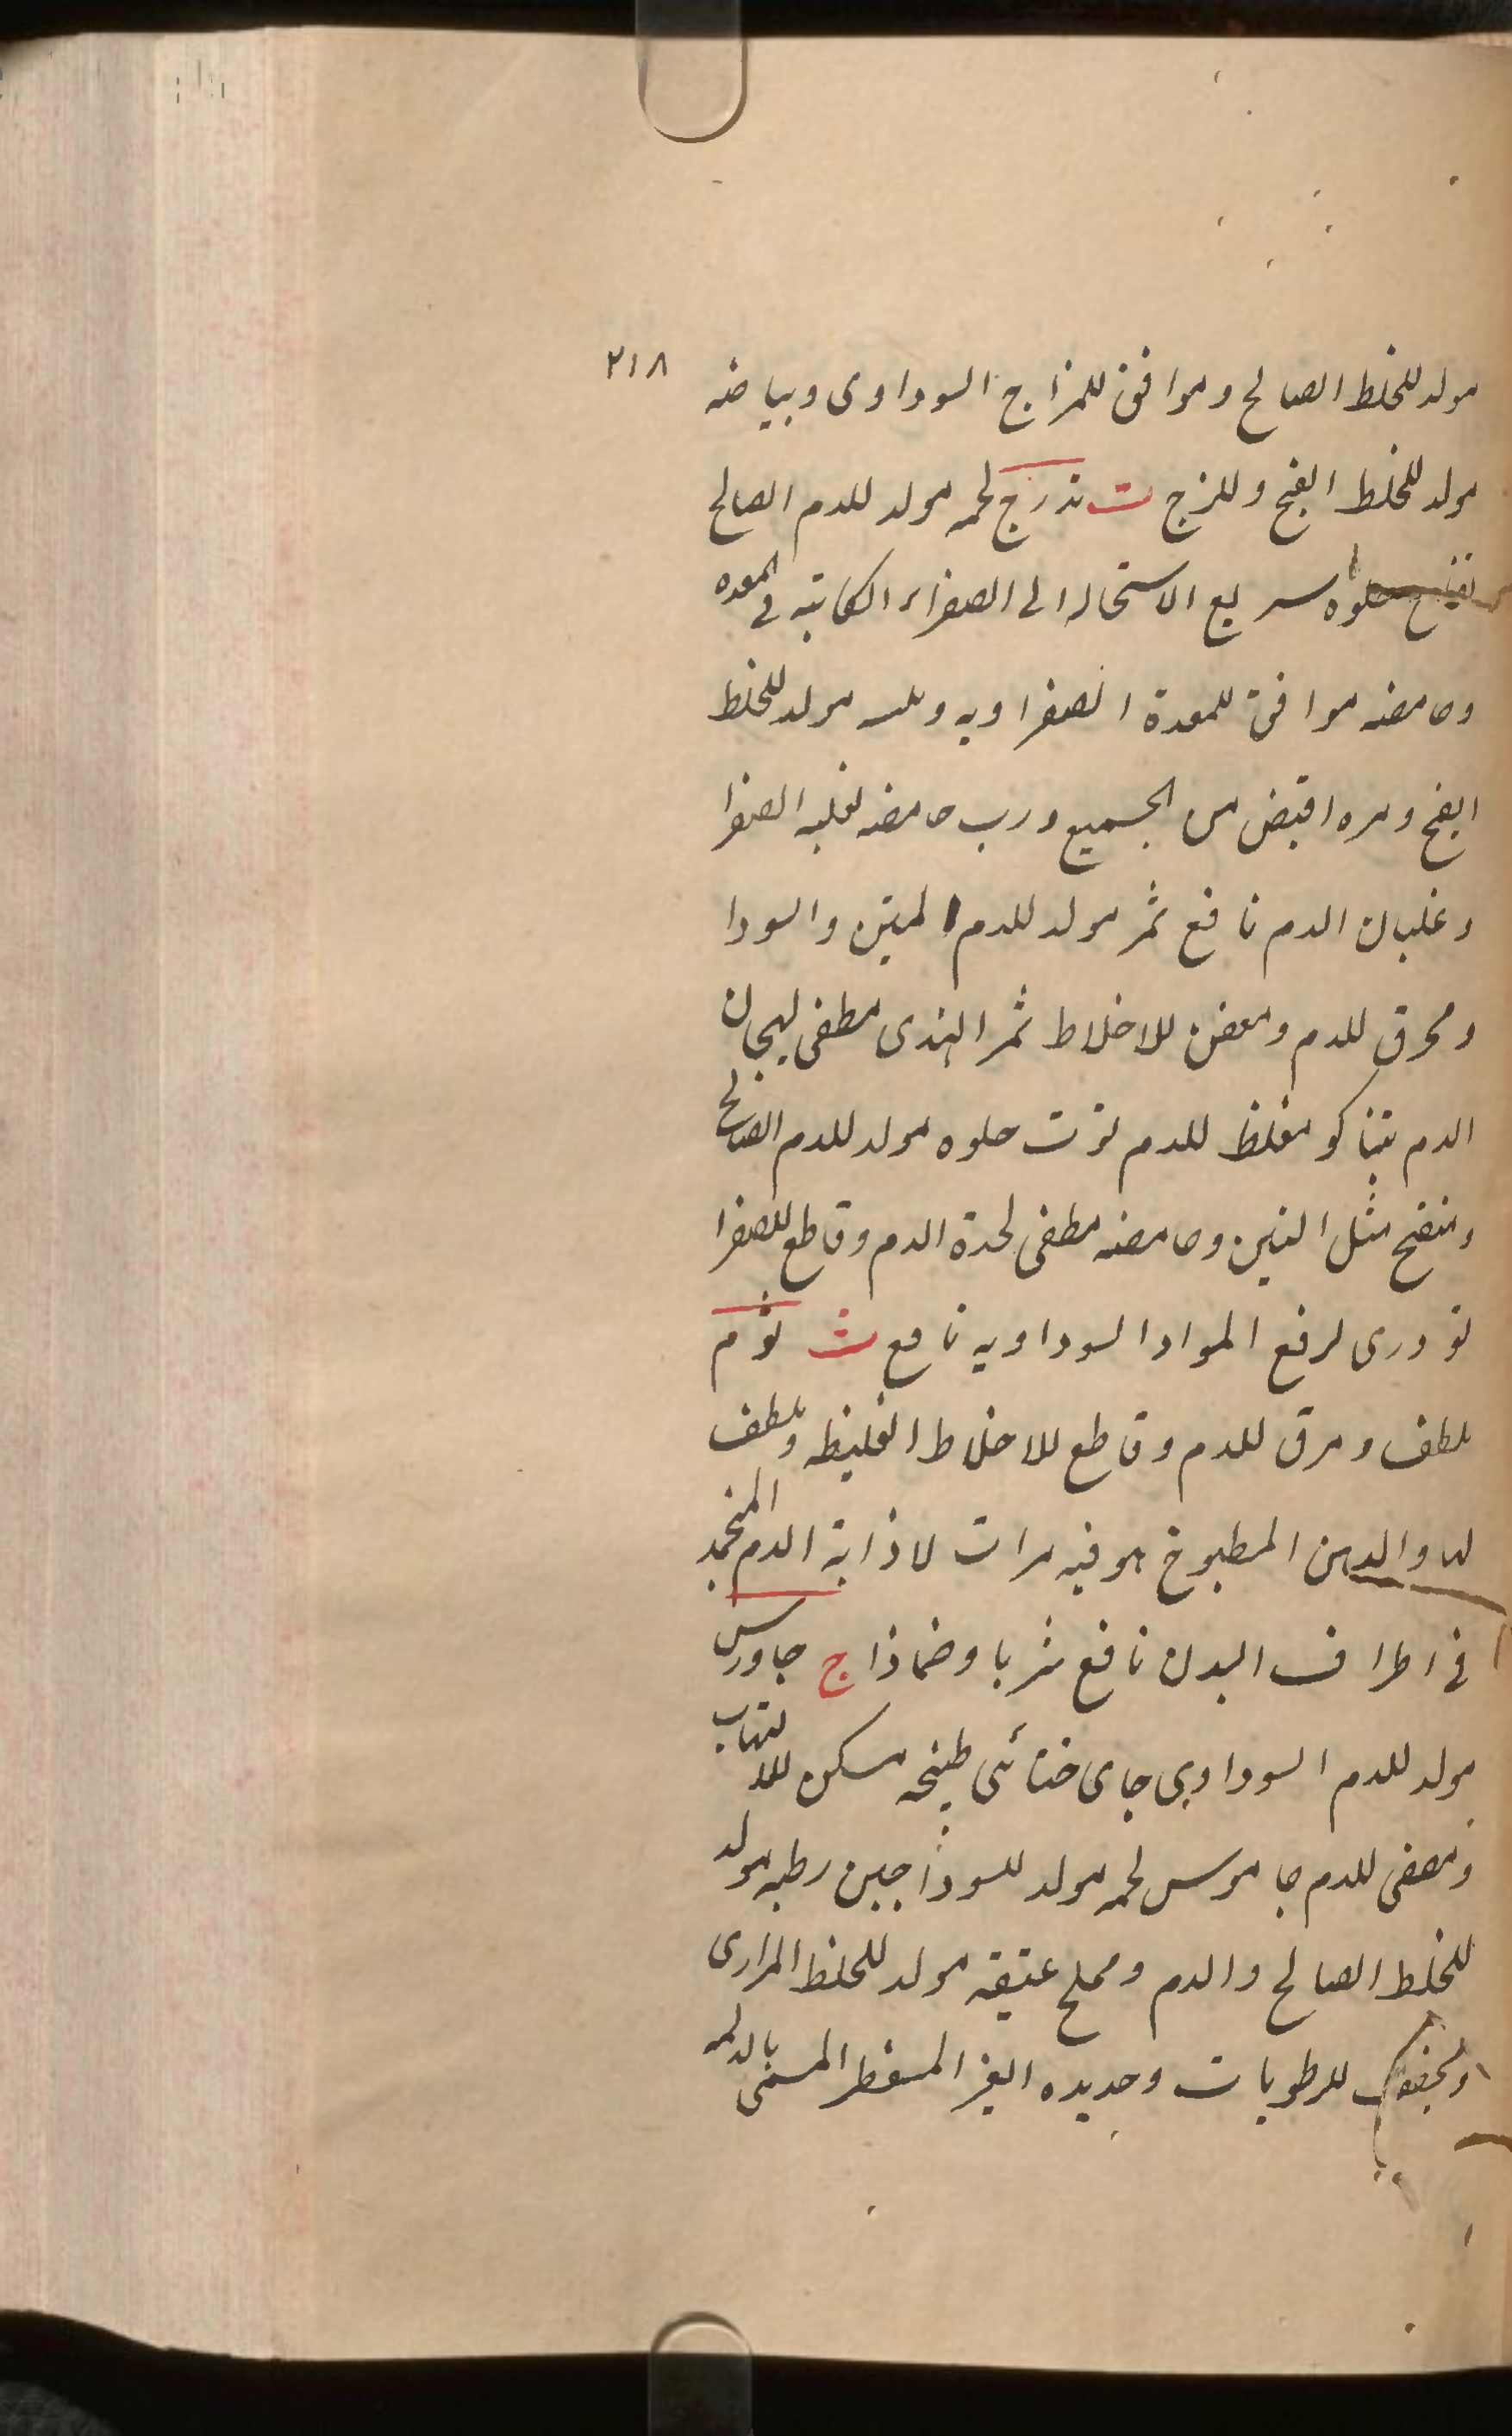 ٢١٨
مولد للخلط الصالح وموافق للمزاج السوداوى وبياضه
مولد للخلط الفج وللزج ت تذرج لحمه مولد للدم الصالح
تفاح حلوه سريع الاستحاله الى الصفراء الكاينه فى المعده
وحامضه موافق للمعدة الصفراويه مولد للخلط
الفج ومره اقبض من الجميع ورب حامضه لغلبه الصفرا
وغليان الدم نافع تمر مولد للدم المتين والسودا
ومحرق للدم ومعفن للاخلاط تمر الهندى مطفى لهيجان
الدم تنباكو مغلظ للدم توت حلوه مولد للدم الصالح
ومنضج مثل التين وحامضه مطفى لحدة الدم وقاطع للصفرا
تودرى لرفع المواد السوداويه نافع ث ثوم
ملطف ومرق للدم وقاطع للاخلاط الغليظه وملطف
لها والدهن المطبوخ هو فيه مرات لاذابة الدم المنجمد
فى اطراف البدن نافع شربا وضماذا ج جاورس
مولد للدم السوداوى جاى ختائى طبيخه مسكن للالتهاب
ومصفى للدم جاموس لحمه مولد للسودا جبن رطبه مولد
للخلط الصالح والدم ومملح عتيقه مولد للخلط المرارى
ومجفف للرطوبات وجديده الغير المسمى بالدلمه